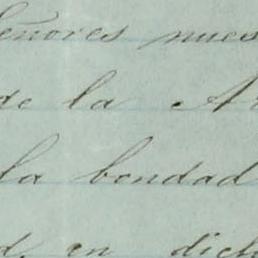 Señores nues
de la Ar
la bondad
d, en dich